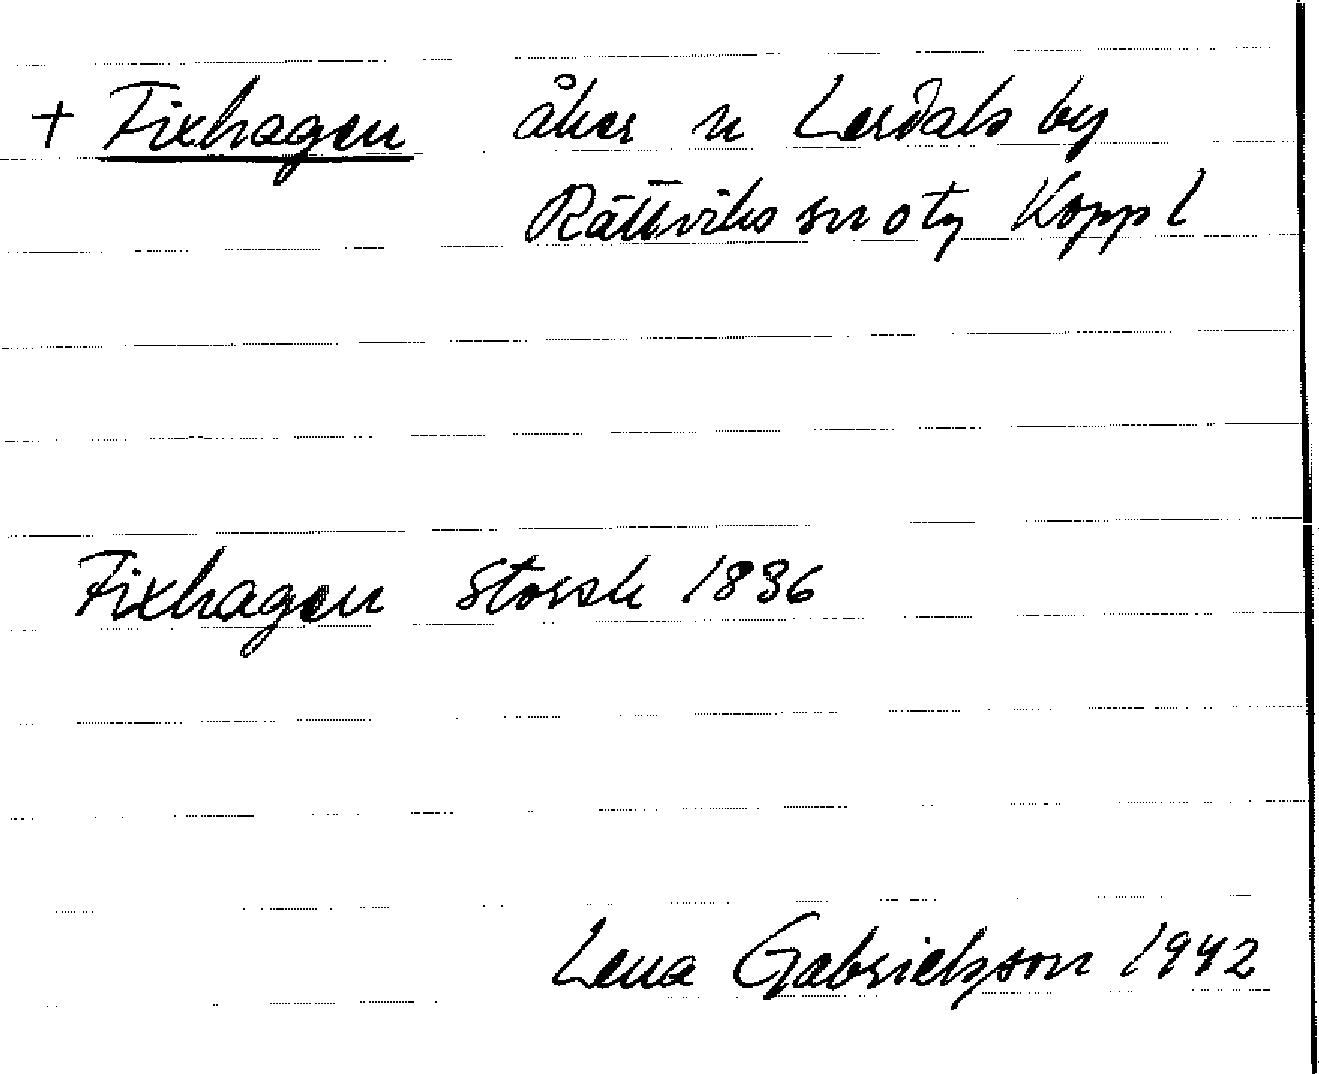 + Fixhagen åker n Lerdals by
Rättviks sn o tg Koppl
Fixhagen Storsk 1836
Lena Gabrielsson 1942